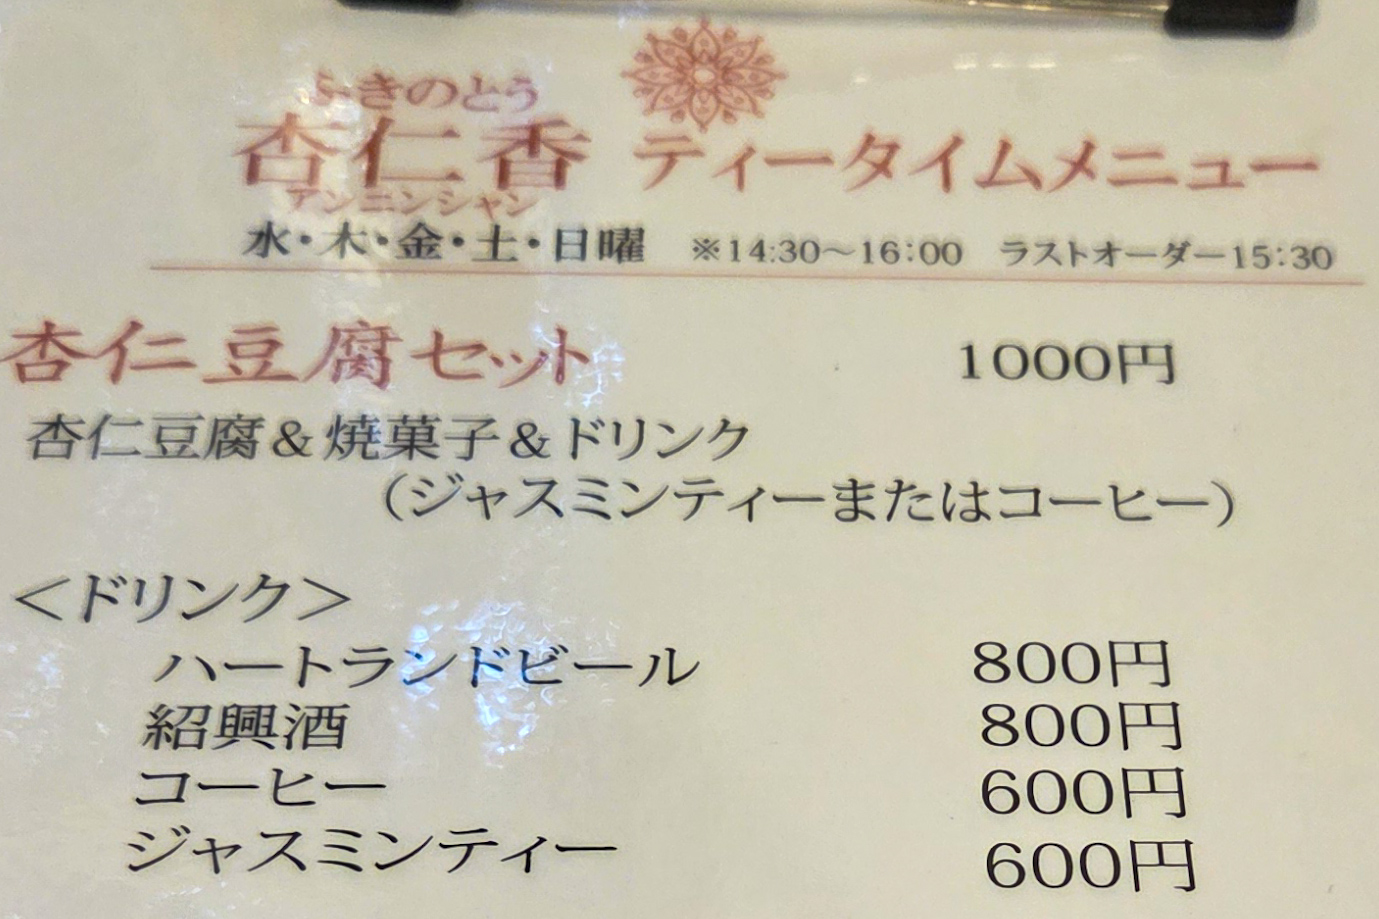 ふきのとう
杏仁香 ティータイムメニュー
アンニンシャン
水・木・金・土・日曜 ※14:30～16:00 ラストオーダー15:30
杏仁豆腐セット 1000円
杏仁豆腐＆焼菓子＆ドリンク
（ジャスミンティーまたはコーヒー）
＜ドリンク＞
ハートランドビール 800円
紹興酒 800円
コーヒー 600円
ジャスミンティー 600円